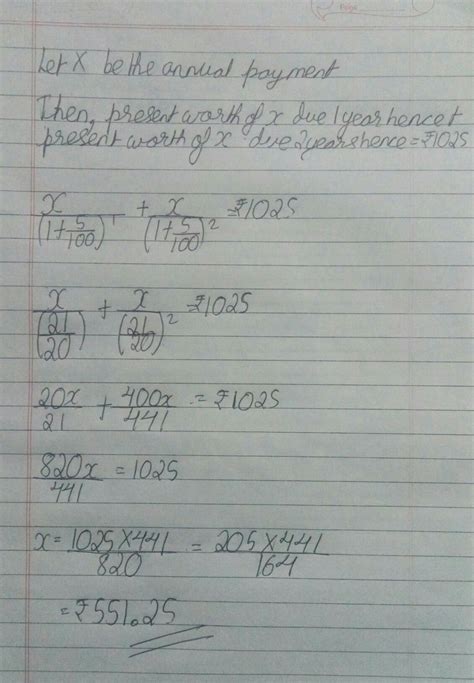 Page
Let X be the annual payment
Then, present worth of x due 1 year hence +
present worth of x due 2 years hence = ₹1025
x/(1+5/100)¹ + x/(1+5/100)² = ₹1025
x/(21/20) + x/(21/20)² = ₹1025
20x/21 + 400x/441 = ₹1025
820x/441 = 1025
x = 1025 X 441/820 = 205 X 441/164
= ₹551.25